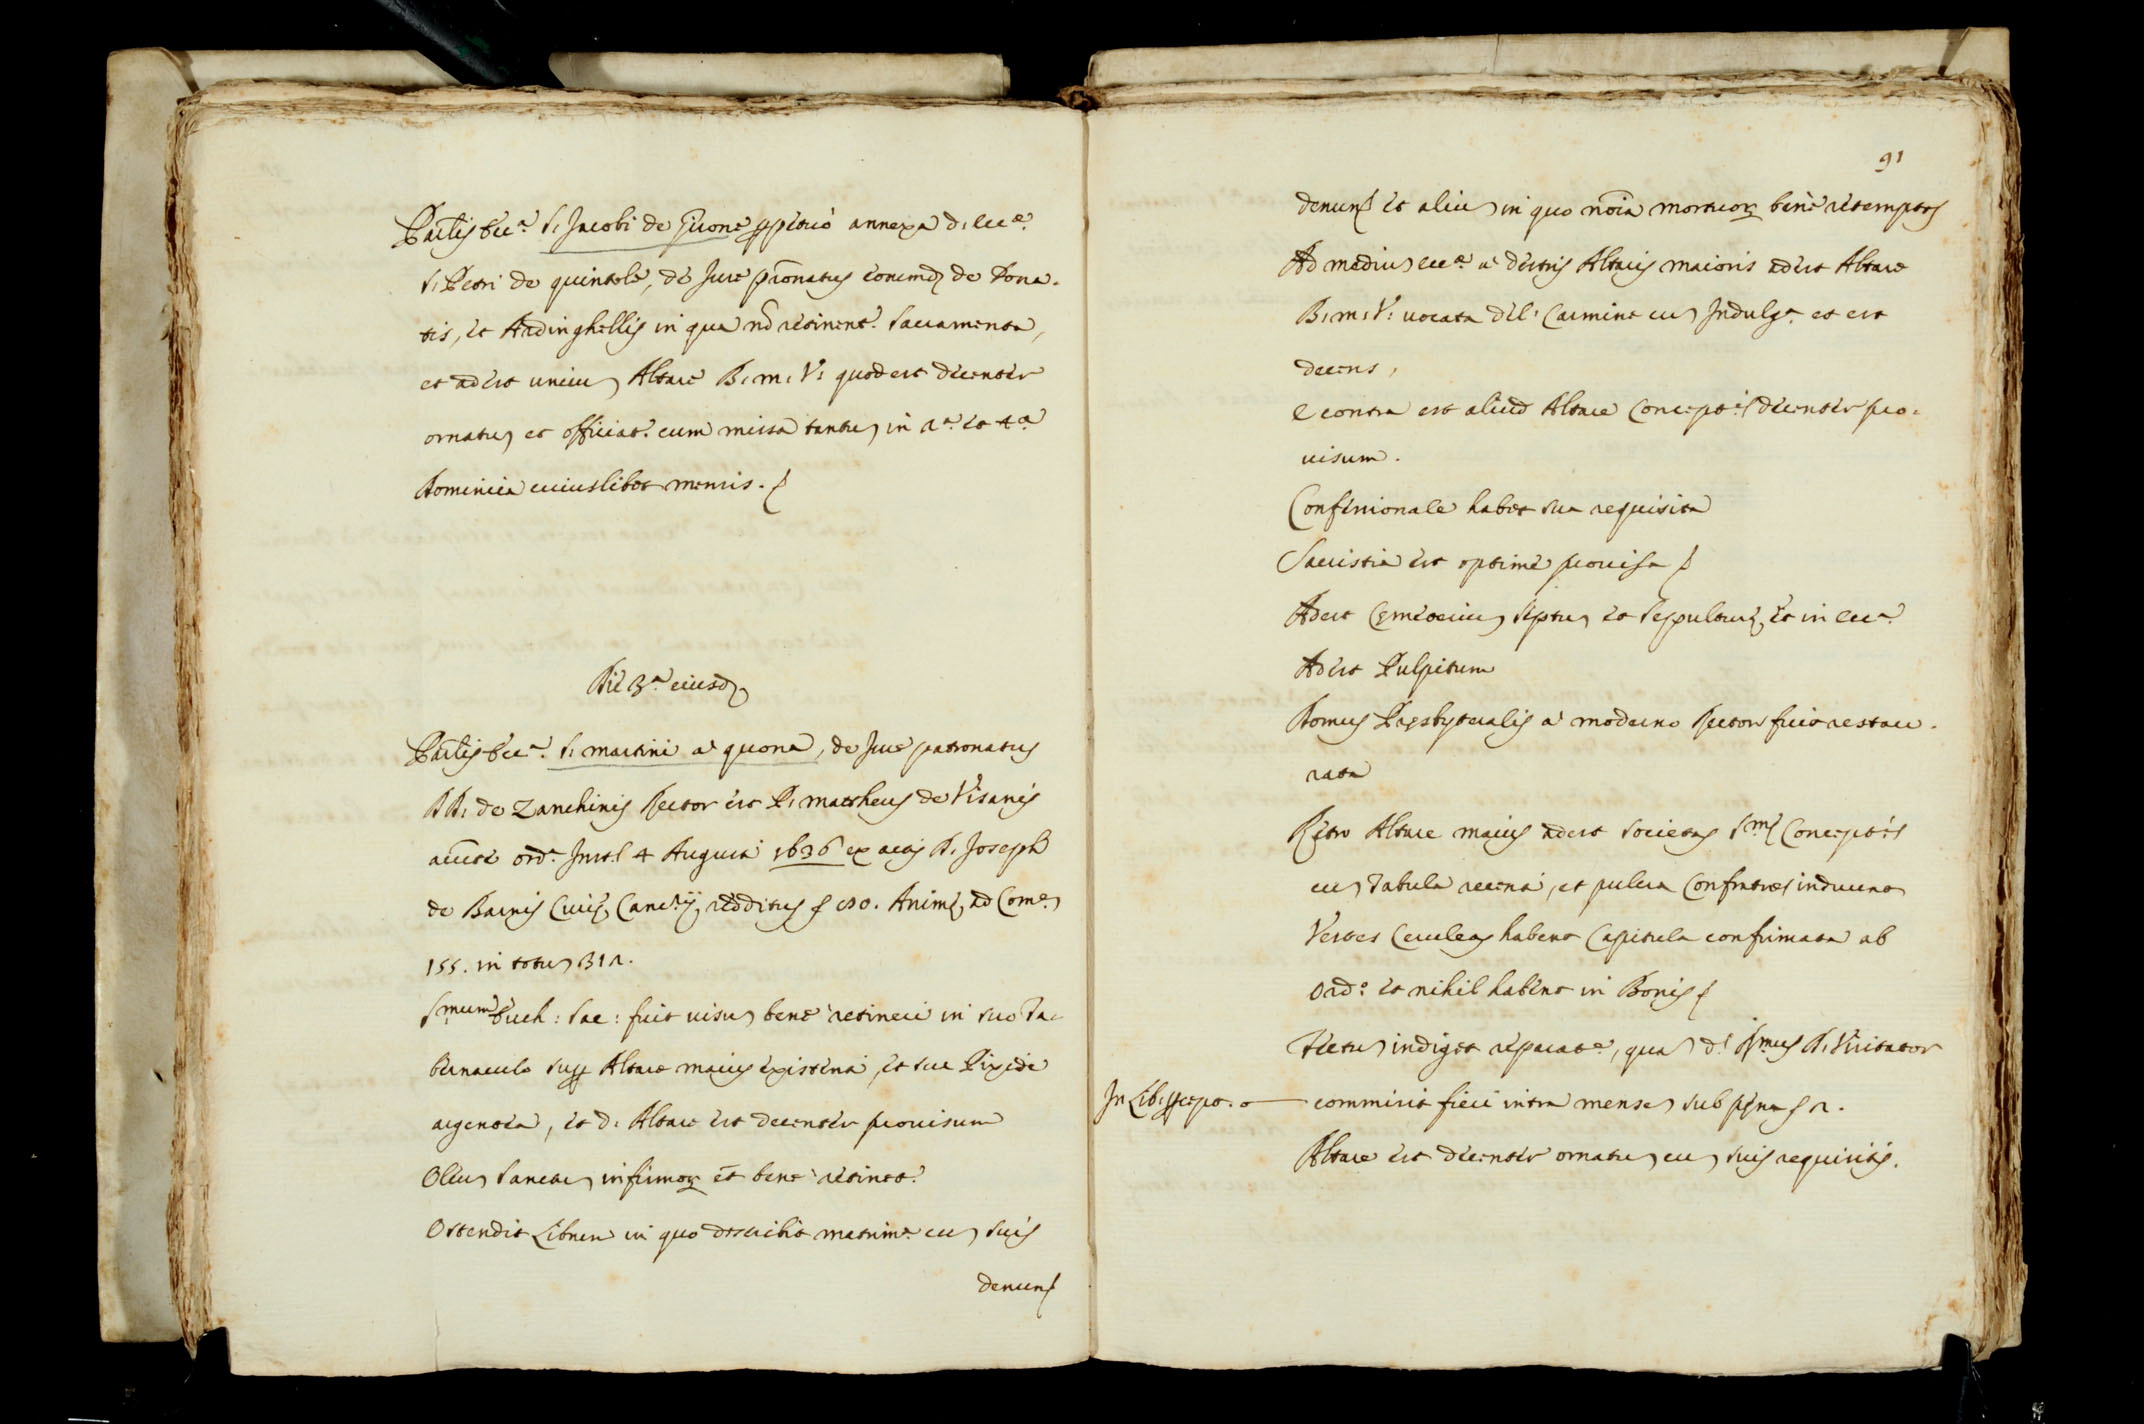 Par.lis Ecc.a S. Jacobi de Girone perpetuo annexa d. ecc.e
S. Petri de quintole, de Jure pronatus eorumd. de Dona-
tis, et Ardinghellis in qua nō retinent.r Sacramenta,
et adest unicu Altare B. m. V. quod est decenter
ornatu et officiat.r cum missa tantu in 2.a et 4.a
Dominica cuiuslibet mensis.
Die 3.a eiusd.
Par.lis Ecc.a S. martini a quona, de Jure patronatus
DD. de Zanchinis Rector est P. mattheus de Visanis
auct.e ord.a Inst. 4 Augusti 1636 ex actis D. Joseph
de Barnis Curię Canc.rij, redditus
155. in totu 312.
S.mum Euch: Sac: fuit visu bene retineri in suo Ta-
bernaculo supp Altare maius existenti, et sue Pixide
argentea, et d. Altare est decenter provisum
Oleu Sanctu infirmor et bene retinet.r
Ostendit Libru in quo describit matrim.a cu suis
denun
91
denun et aliu in quo noīa mortuor bene retempta
Ad mediu ecc.e a dextris Altaris maioris adest Altare
B. m. V. vocata del. Carmine cu Indulg.a et est
decens,
e contra est aliud Altare Concept.is decenter pro-
visum.
Confessionale habet sua requisita
Sacristia est optime provisa
Adest Cęmeteriu septu et sepulturę et in ecc.a
Adest Pulpitum
Domus Pręsbyteralis a moderno Rectore fuit restau-
rata
Retro Altare maius adest societas S.mę Concept.is
cu Tabula recenti, et pulcra Confratres induunt
Vestes Ceruleas habent Capitula confirmata ab
Ord.o et nihil habent in Bonis
Tectu indiget reparat.e, qua d. Ill.mus D. Visitator
In Lib. precept. commisit fieri intra mense sub pęna 2.
Altare est decenter ornatu cu suis requisitis.